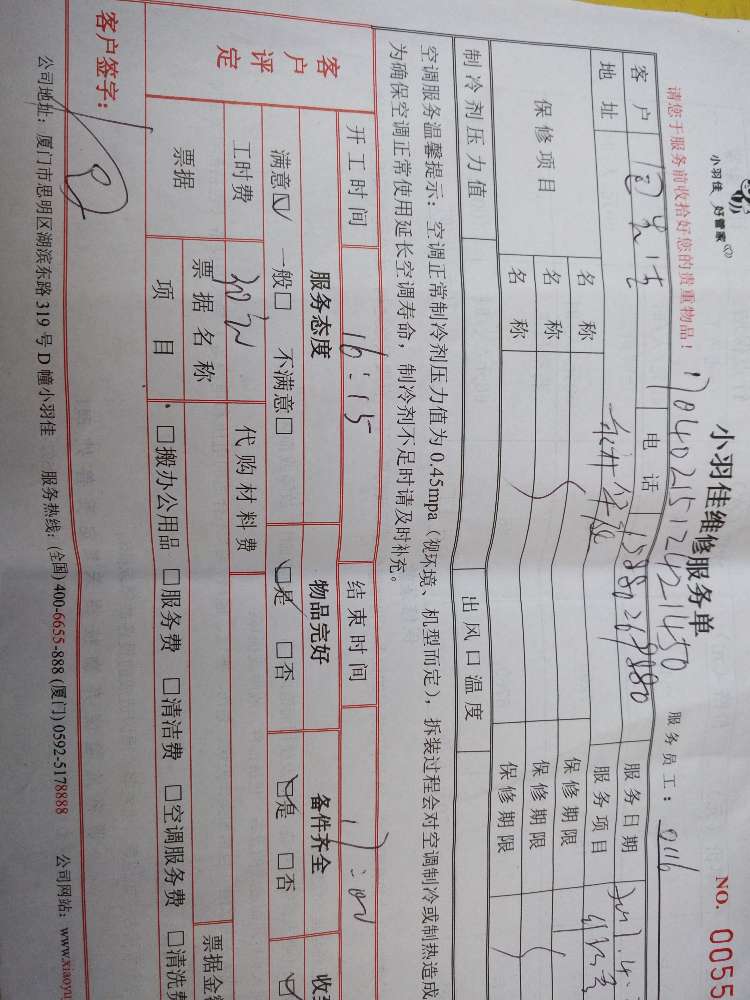 小羽佳 好管家
小羽佳维修服务单
NO. 0055
请您于服务前收拾好您的贵重物品!
服务员工:
客户 电话 服务日期
地址 服务项目
保修项目 名称 保修期限
名称 保修期限
名称 保修期限
制冷剂压力值 出风口温度
空调服务温馨提示:空调正常制冷剂压力值为 0.45mpa(视环境、机型而定),拆装过程会对空调制冷或制热造成
为确保空调正常使用延长空调寿命,制冷剂不足时请及时补充。
开工时间 16:15 结束时间 17:00
客户评定
服务态度 物品完好 备件齐全 收
满意☑ 一般□ 不满意□ ☑是 □否 ☑是 □否
工时费 代购材料费
票据 票据名称 票据金
项目 □搬办公用品 □服务费 □清洁费 □空调服务费 □清洗费
客户签字:
公司地址:厦门市思明区湖滨东路 319 号 D 幢小羽佳 服务热线:(全国) 400-6655-888 (厦门) 0592-5178888 公司网站:www.xiaoyu